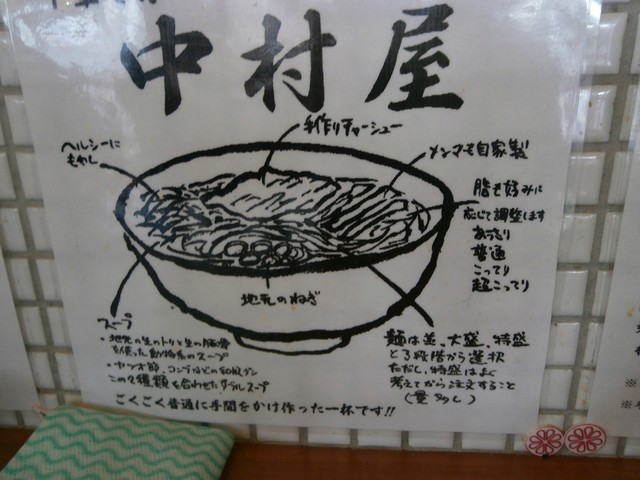 中村屋
手作りチャーシュー
ヘルシーに
もやし
メンマも自家製
脂も好みに
応じて調整します
あっさり
普通
こってり
超こってり
地元のねぎ
スープ
・地元の生のトリと生の豚骨
を使った動物系のスープ
・カツオ節、コンブなどの和風ダシ
この2種類を合わせたダブルスープ
麺は並、大盛、特盛
と3段階から選択
ただし、特盛はよく
考えてから注文すること
(量多し)
ごくごく普通に手間をかけ作った一杯です!!
※
※